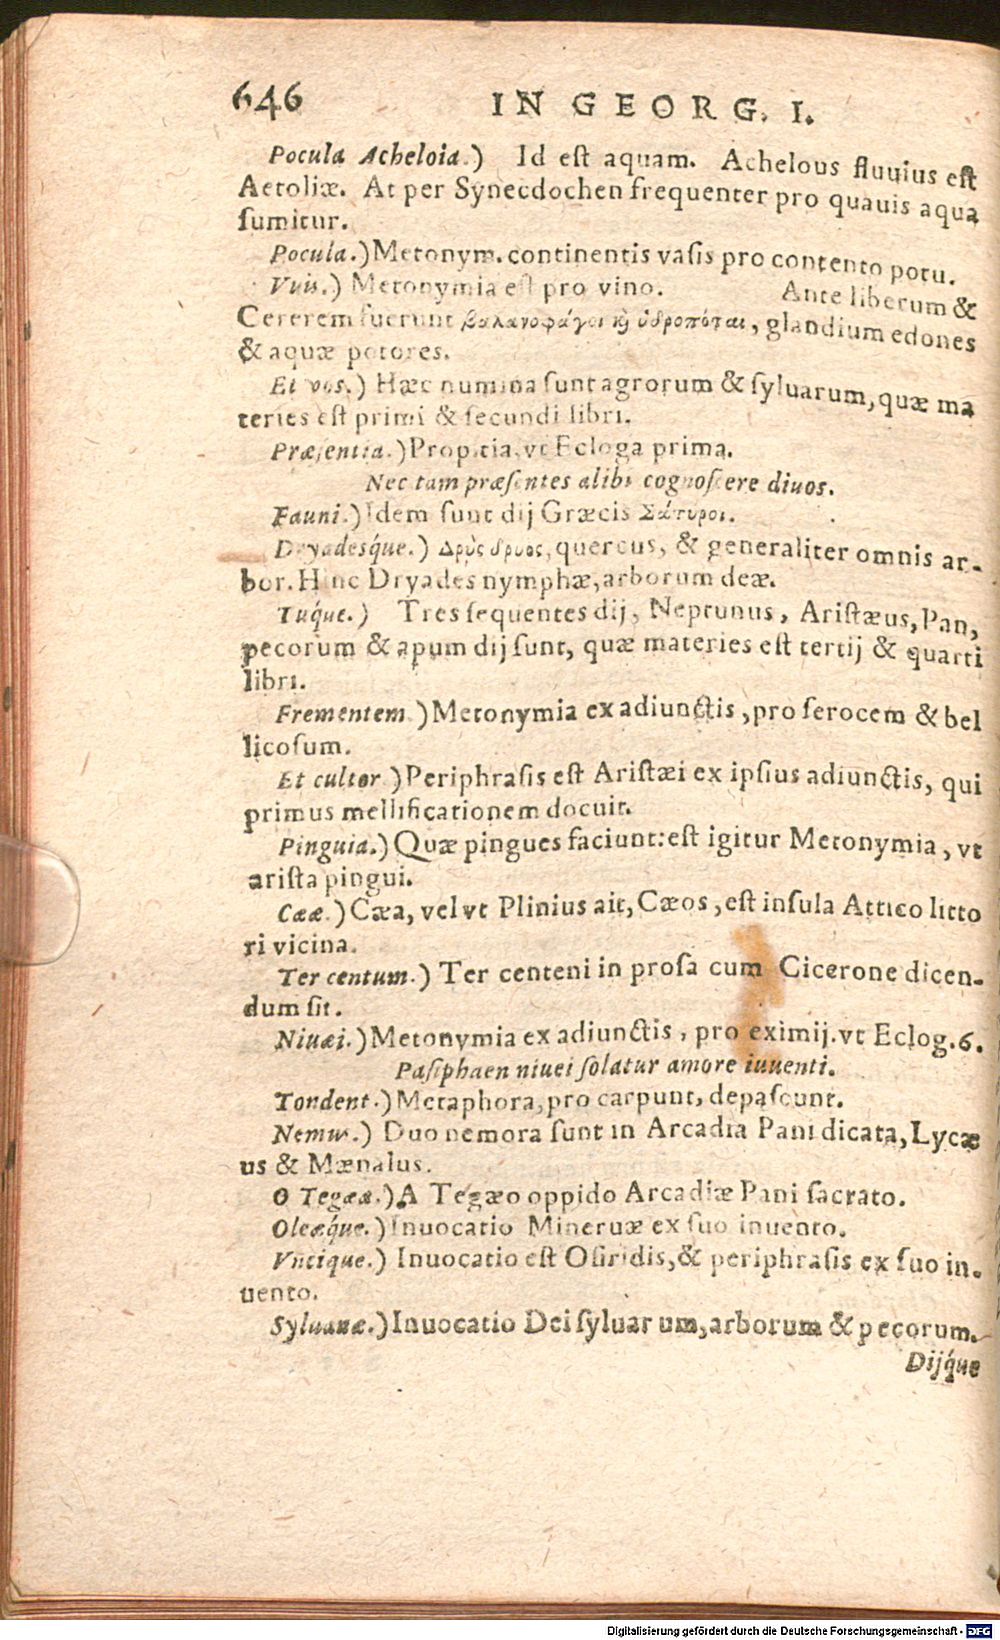 646 IN GEORG. I.
Pocula Acheloia.) Id est aquam. Achelous fluuius est
Aetoliæ. At per Synecdochen frequenter pro quauis aqua
sumitur.
Pocula.) Metonym. continentis vasis pro contento potu.
Vuis.) Metonymia est pro vino. Ante liberum &
Cererem fuerunt βαλανοφάγοι καὶ ὑδροπόται, glandium edones
& aquæ potores.
Et vos.) Hæc numina sunt agrorum & syluarum, quæ ma
teries est primi & secundi libri.
Præsentia.) Propitia, vt Ecloga prima.
Nec tam præsentes alibi cognoscere diuos.
Fauni.) Idem sunt dij Græcis Σάτυροι.
Dryadesq́ue.) Δρῦς δρυος, quercus, & generaliter omnis ar-
bor. Hinc Dryades nymphæ, arborum deæ.
Tuq́ue.) Tres sequentes dij, Neptunus, Aristæus, Pan,
pecorum & apum dij sunt, quæ materies est tertij & quarti
libri.
Frementem.) Metonymia ex adiunctis, pro ferocem & bel
licosum.
Et cultor.) Periphrasis est Aristæi ex ipsius adiunctis, qui
primus mellificationem docuit.
Pinguia.) Quæ pingues faciunt: est igitur Metonymia, vt
arista pingui.
Cææ.) Cæa, vel vt Plinius ait, Cæos, est insula Attico litto
ri vicina.
Ter centum.) Ter centeni in prosa cum Cicerone dicen-
dum sit.
Niuæi.) Metonymia ex adiunctis, pro eximij. vt Eclog. 6.
Pasiphaen niuei solatur amore iuuenti.
Tondent.) Metaphora, pro carpunt, depascunt.
Nemus.) Duo nemora sunt in Arcadia Pani dicata, Lycæ
us & Mænalus.
O Tegææ.) A Tegæo oppido Arcadiæ Pani sacrato.
Oleæq́ue.) Inuocatio Mineruæ ex suo inuento.
Vncique.) Inuocatio est Osiridis, & periphrasis ex suo in-
uento.
Syluanæ.) Inuocatio Dei syluarum, arborum & pecorum.
Dijq́ue
Digitalisierung gefördert durch die Deutsche Forschungsgemeinschaft - DFG